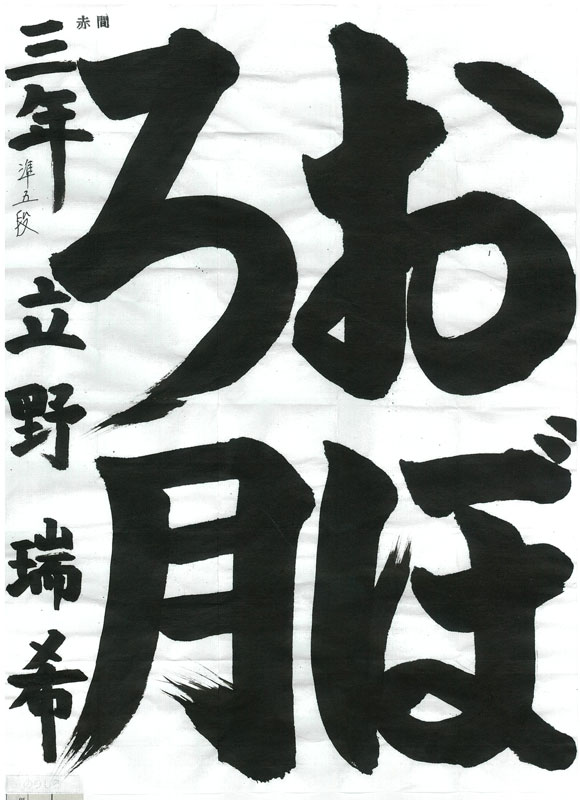 おぼ
ろ月
三年 準五段 立野 瑞希
赤間